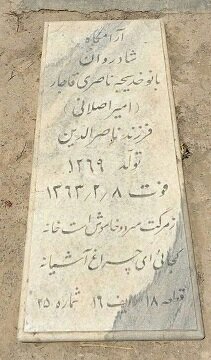 آرامگاه
شادروان
بانو خدیجه ناصری قاجار
(امیراصلانی)
فرزند ناصرالدین
تولد ۱۲۶۹
فوت ۱۳۶۳/۲/۸
ز مرگت سرد و خاموش است خانه
کجائی ای چراغ آشیانه
قطعه ۱۸ ردیف ۱۶ شماره ۳۵